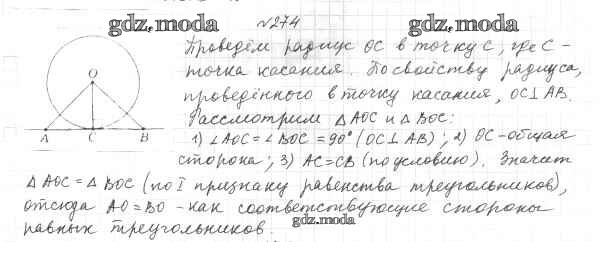 gdz.moda №274 gdz.moda
Проведём радиус OC в точку C, где C –
точка касания. По свойству радиуса,
проведённого в точку касания, OC⊥AB.
Рассмотрим △AOC и △BOC:
1) ∠AOC = ∠BOC = 90° (OC⊥AB); 2) OC - общая
сторона; 3) AC = CB (по условию). Значит
△AOC = △BOC (по I признаку равенства треугольников),
отсюда AO = BO - как соответствующие стороны
равных треугольников.
gdz.moda
O
A C B